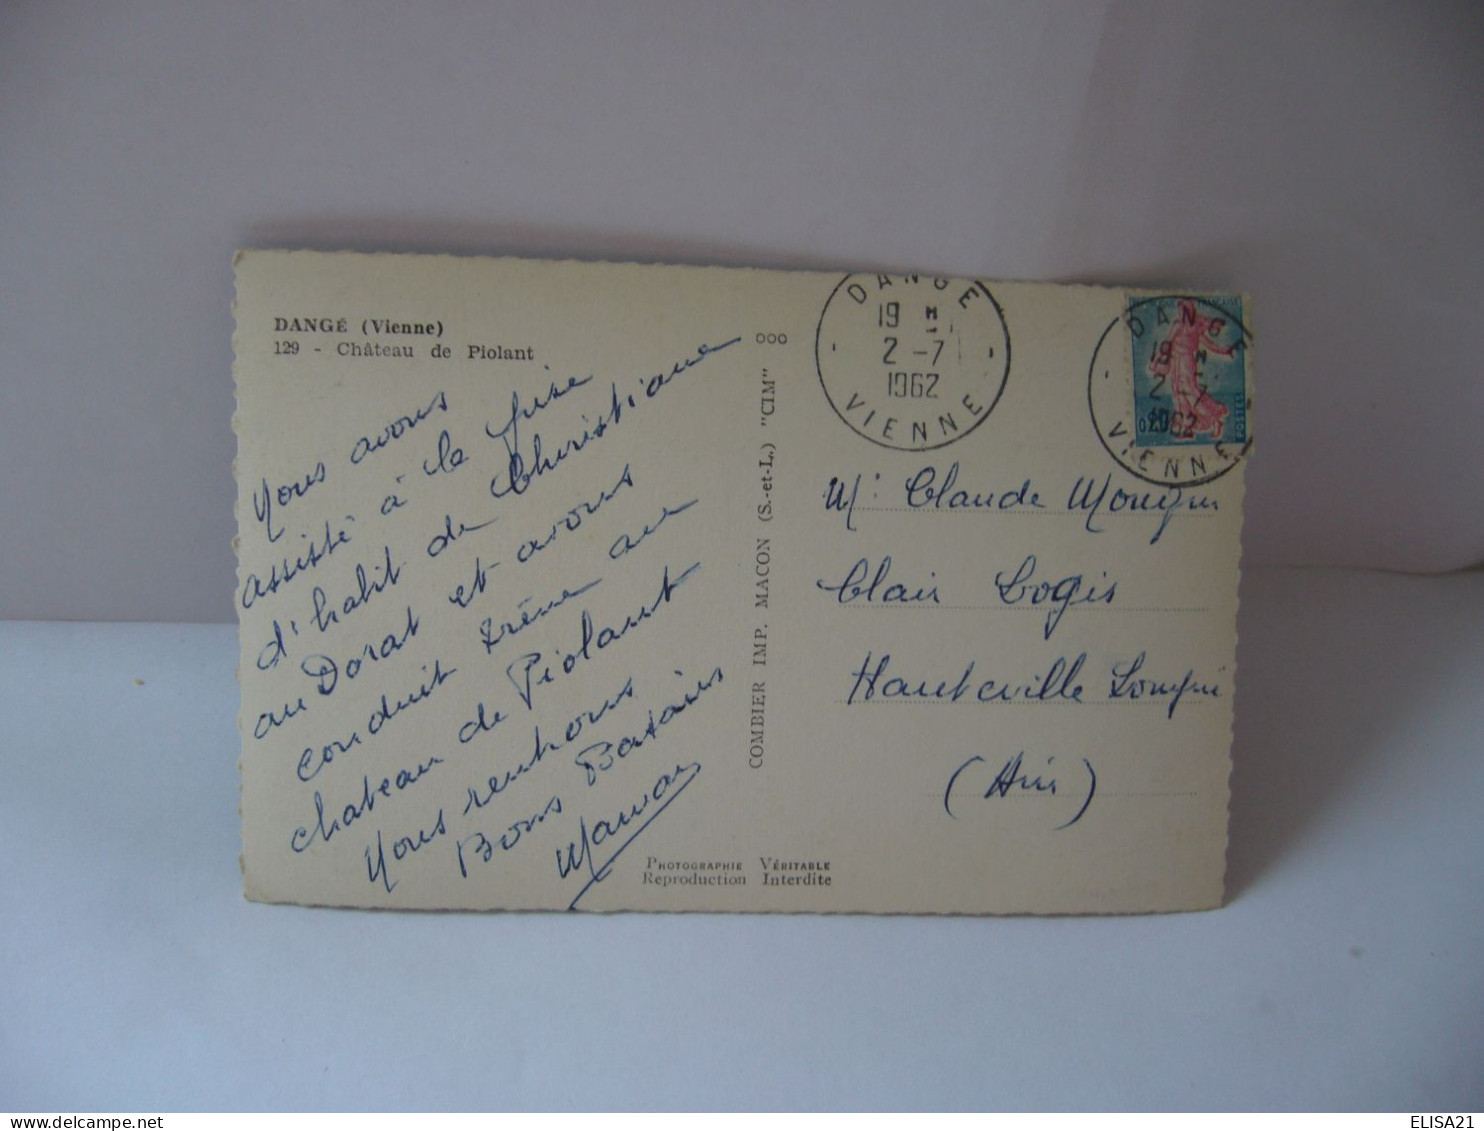 DANGÉ (Vienne)
129 - Château de Piolant
Nous avons
assisté à la prise
d'habit de Christiane
au Dorat et avons
conduit Irène au
chateau de Piolant
Nous rentrons
Bons Baisers
Maman
ooo
COMBIER IMP. MACON (S.-et-L.) "CIM"
PHOTOGRAPHIE VÉRITABLE
Reproduction Interdite
DANGE
19 H
2 -7
1962
VIENNE
DANGE
19 H
2 -7
1962
VIENNE
FRANÇAISE
POSTES
Mr Claude Mougin
Clair Logis
Hauteville Lompnes
(Ain)
ELISA21